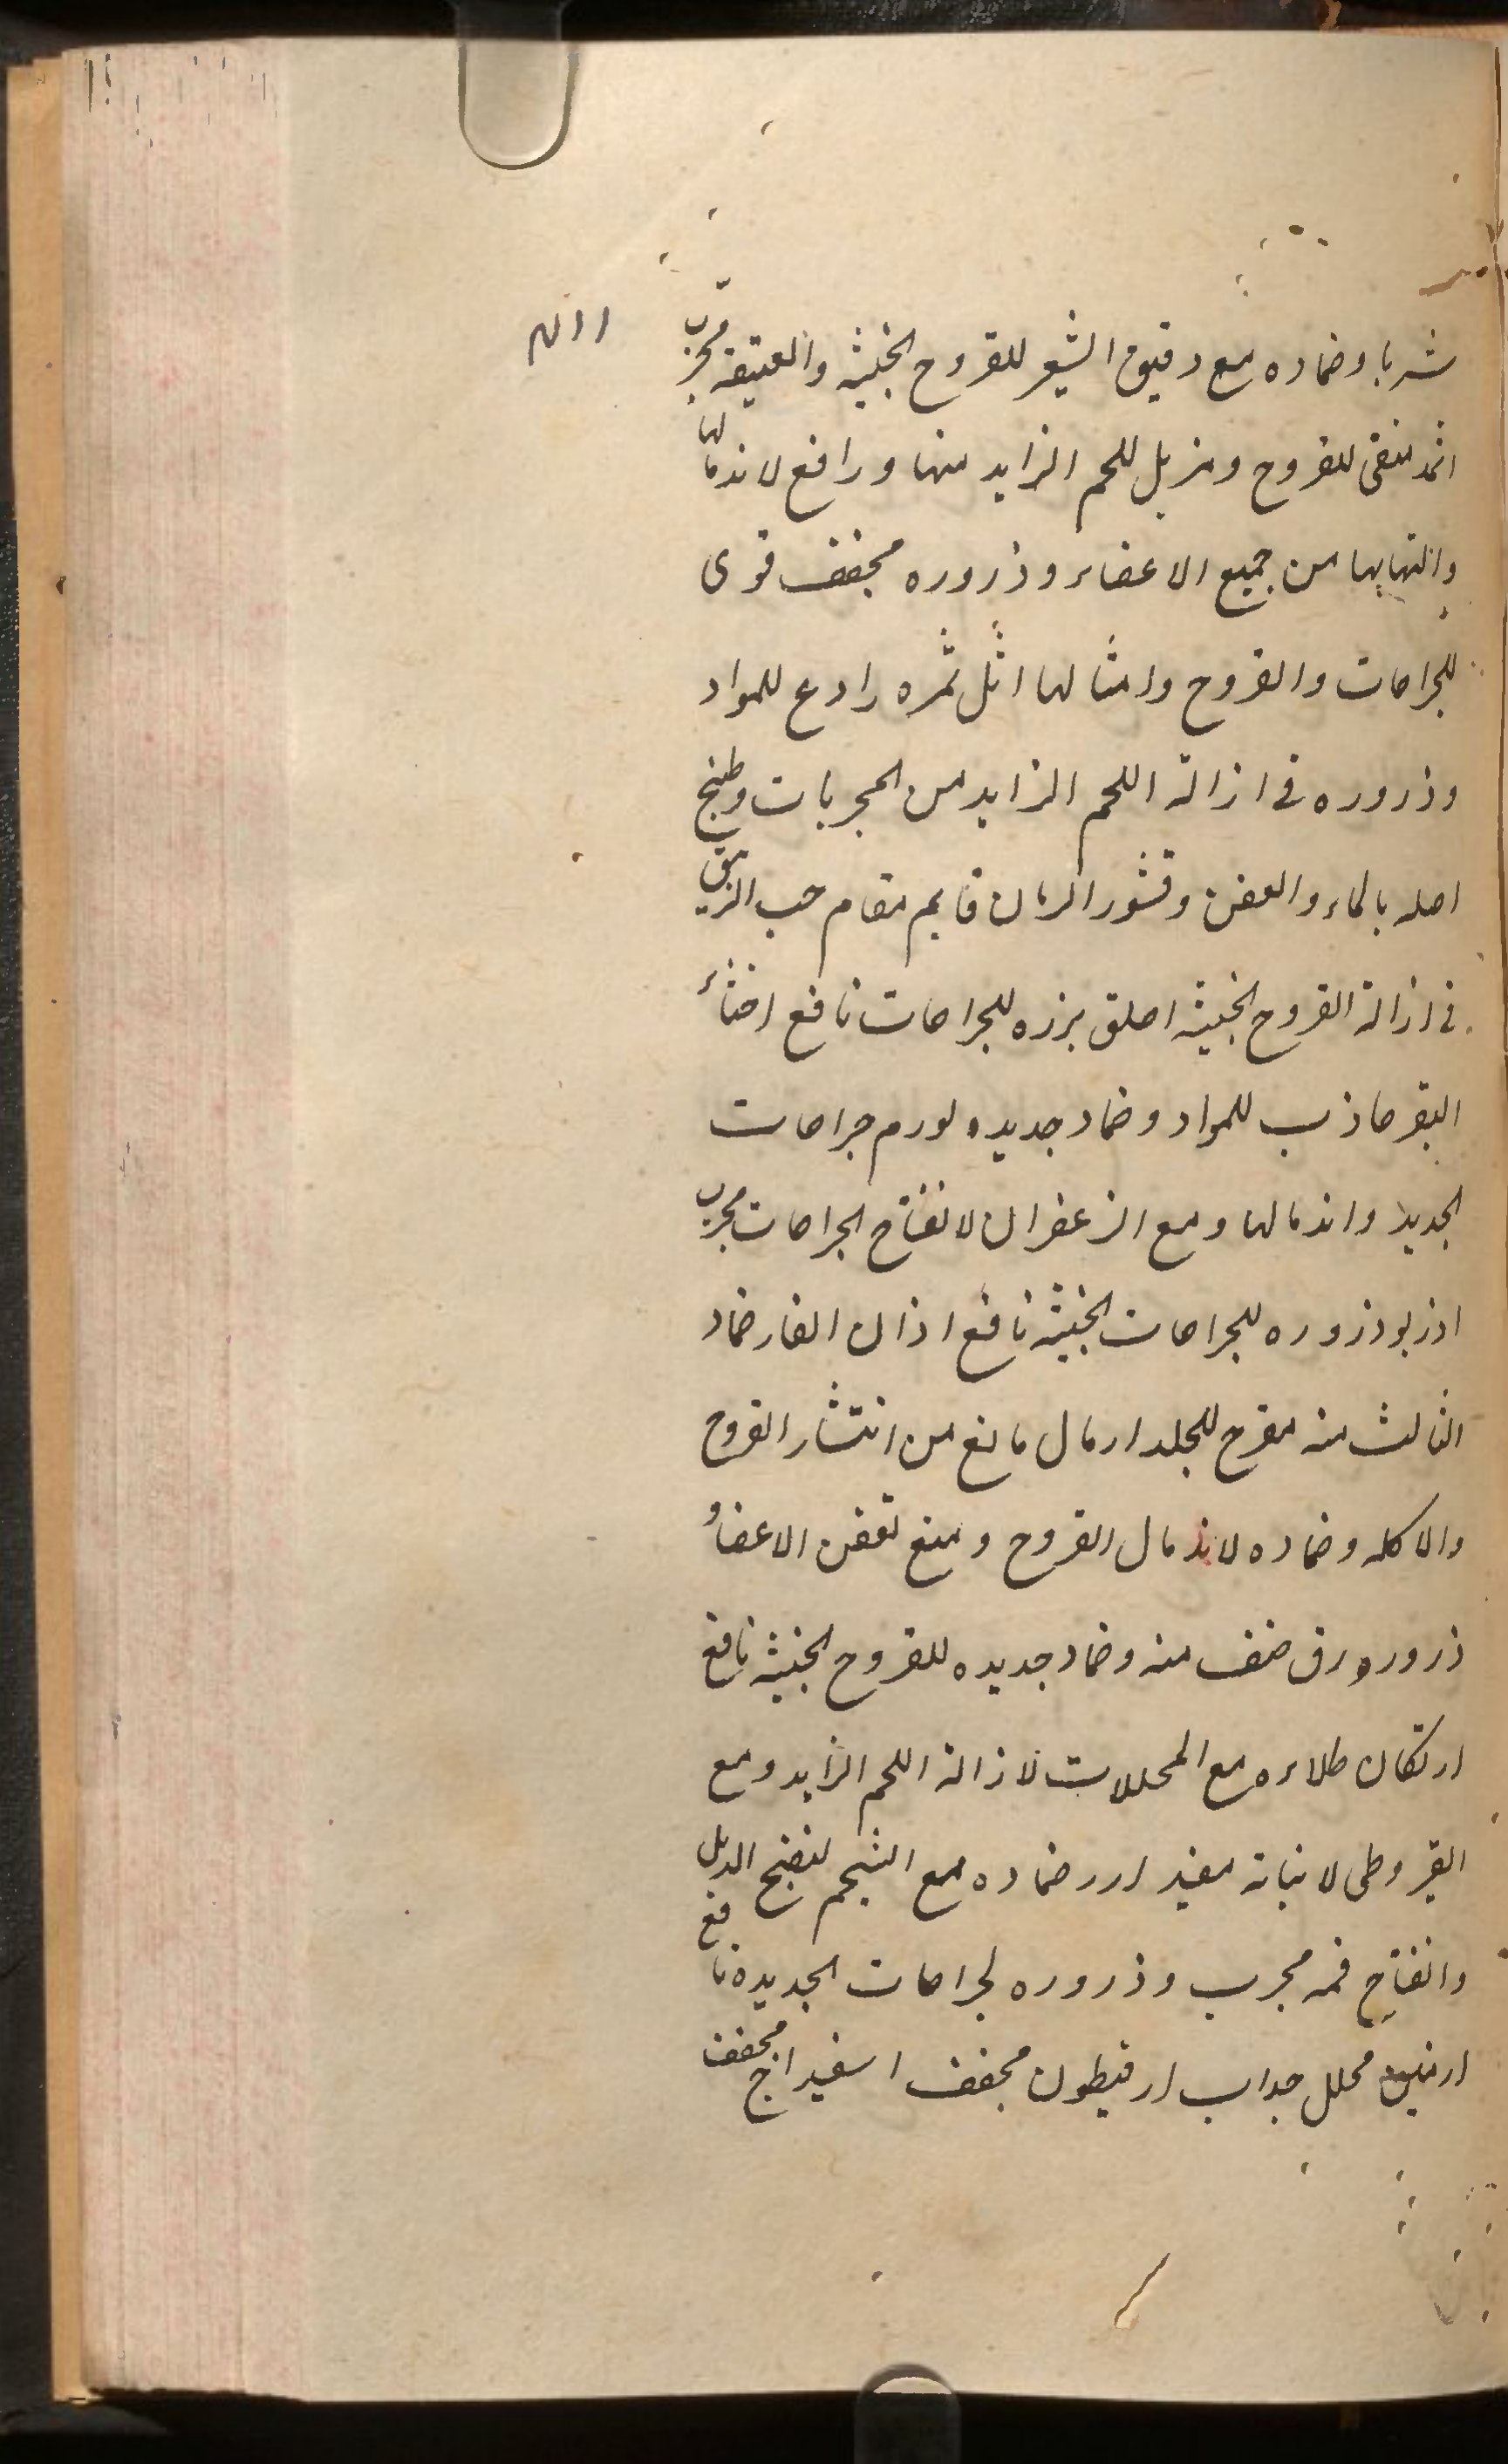 شربا وضماده مع دقیق الشعیر للقروح الخبیثه والعتیقه مجرب
اثمد منقی للقروح ومزیل للحم الزاید منها ورافع لاندمالها
والتهابها من جمیع الاعضاء وذروره مجفف قوی
للجراحات والقروح وامثالها اثل ثمره رادع للمواد
وذروره فی ازالة اللحم الزاید من المجربات وطبخ
اصله بالماء والعفن وقشور الرمان قایم مقام حب الزیبق
فی ازالة القروح الخبیثه اصلق بزره للجراحات نافع اخثاء
البقر جاذب للمواد وضماد جدیده لورم جراحات
الجدید واندمالها ومع الزعفران لانفتاح الجراحات مجرب
اذربو ذروره للجراحات الخبیثه نافع اذان الفار ضماد
الثالث منه مقرح للجلد ارمال مانع من انتشار القروح
والاکله وضماده لاندمال القروح ومنع تعفن الاعضاء و
ذرور ورق صنف منه وضماد جدیده للقروح الخبیثه نافع
ارتکان طلاءه مع المحللات لازالة اللحم الزاید ومع
القیروطی لانباته مفید ارز ضماده مع الشحم لنضج الدمل
وانفتاح فمه مجرب وذروره لجراحات الجدیده نافع
محلل جذاب ارقیطون مجفف اسفیداج مجفف